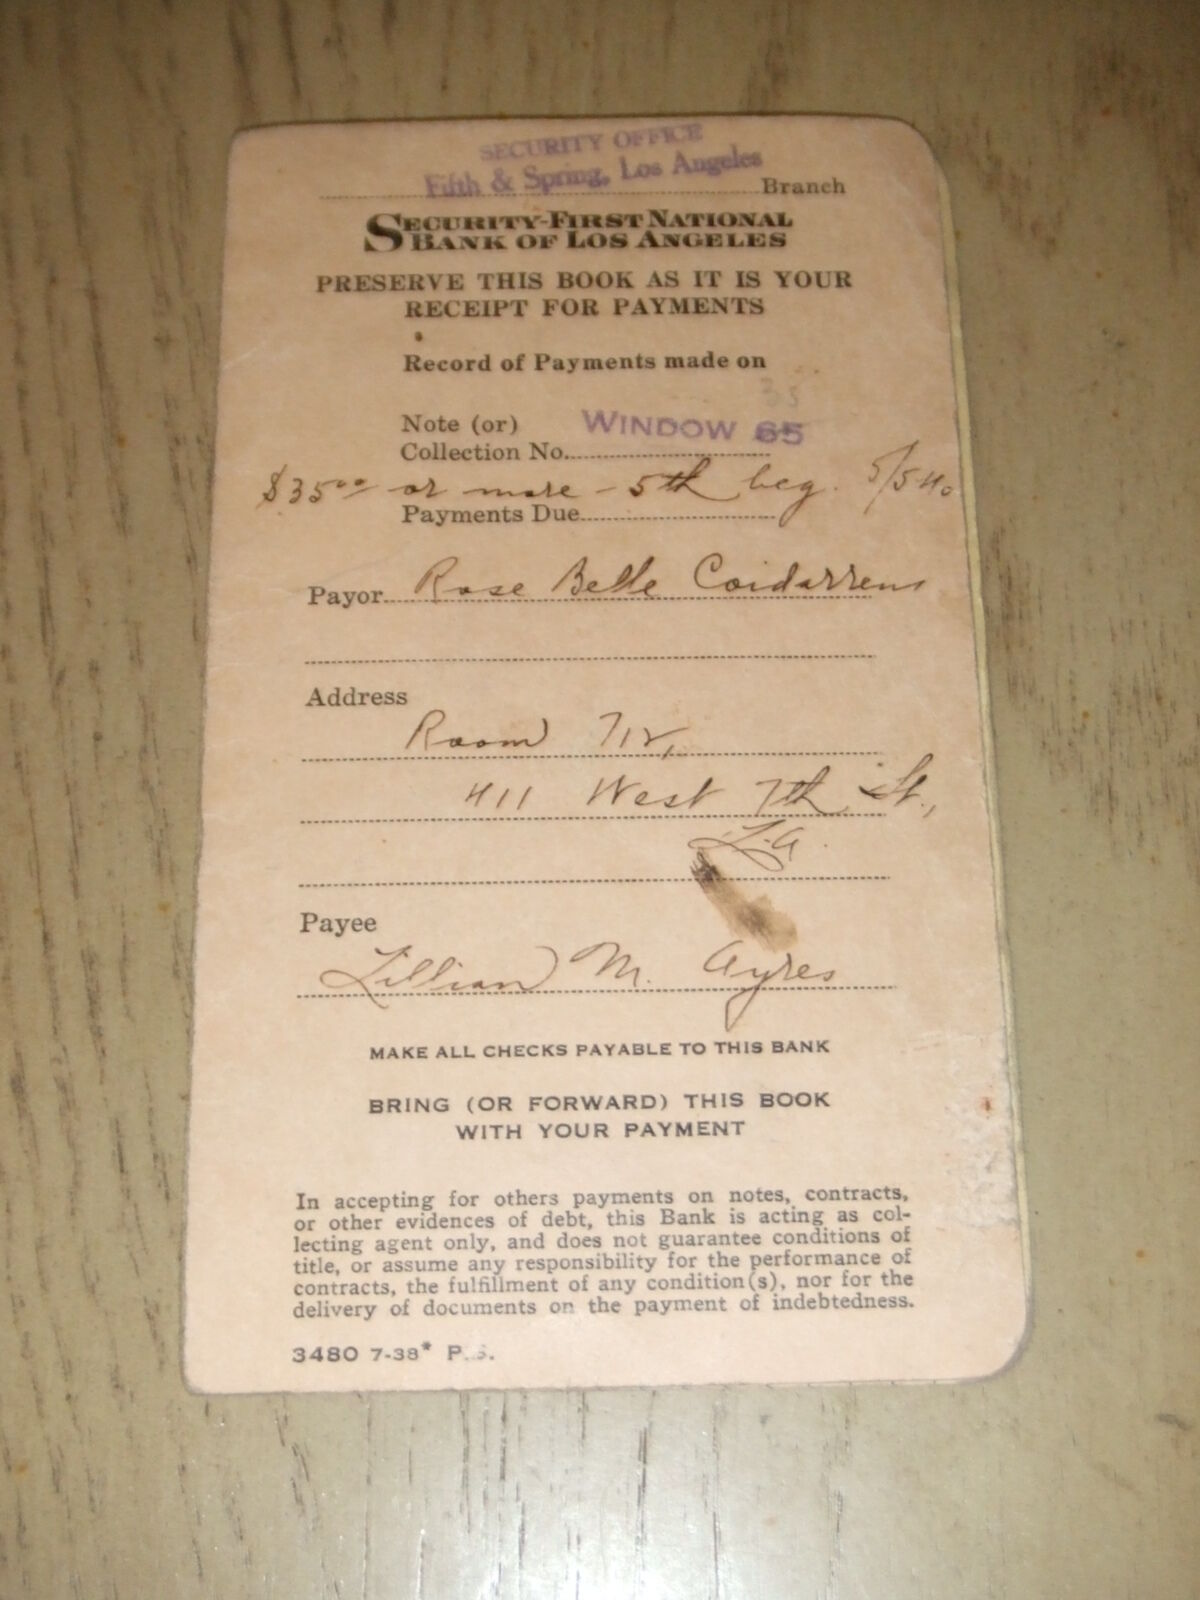 SECURITY OFFICE
Fifth & Spring, Los Angeles
Branch
SECURITY-FIRST NATIONAL
BANK OF LOS ANGELES
PRESERVE THIS BOOK AS IT IS YOUR
RECEIPT FOR PAYMENTS
Record of Payments made on
35
Note (or) WINDOW 65
Collection No.
$35.00 or more - 5th beg. 5/5 40
Payments Due
Payor Rose Belle
Address
Room 712,
411 West 7th St.,
L.A.
Payee
Lillian M. Ayres
MAKE ALL CHECKS PAYABLE TO THIS BANK
BRING (OR FORWARD) THIS BOOK
WITH YOUR PAYMENT
In accepting for others payments on notes, contracts,
or other evidences of debt, this Bank is acting as col-
lecting agent only, and does not guarantee conditions of
title, or assume any responsibility for the performance of
contracts, the fulfillment of any condition(s), nor for the
delivery of documents on the payment of indebtedness.
3480 7-38* P.S.